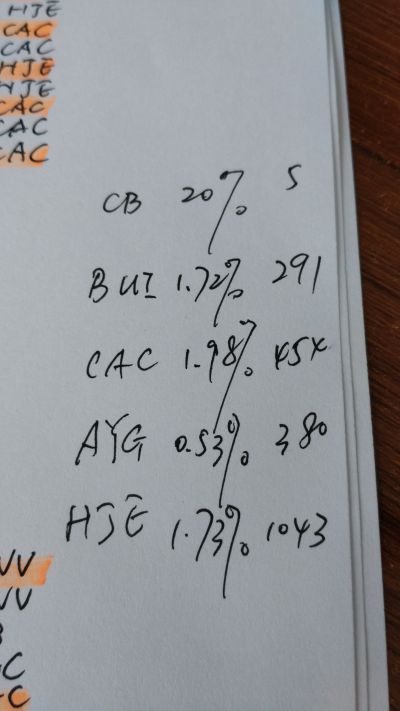 HJE
CAC
CAC
HJE
HJE
CAC
CAC
CAC
CB 20% 5
BUI 1.72% 291
CAC 1.98% 454
AYG 0.53% 380
HJE 1.73% 1043
VV
VV
B
C
C